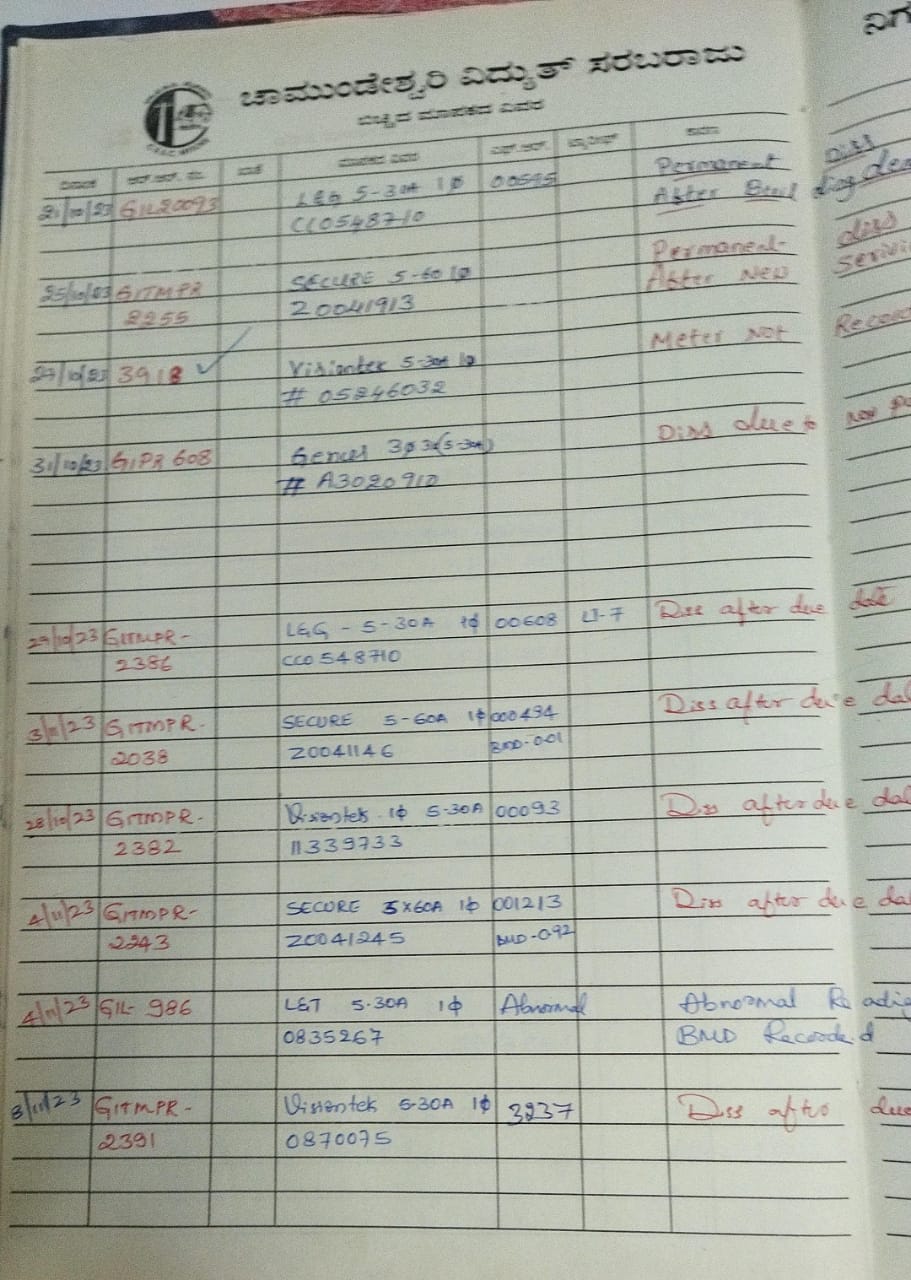 ನಿಗ
ಚಾಮುಂಡೇಶ್ವರಿ ವಿದ್ಯುತ್ ಸರಬರಾಜು
ಬಿಚ್ಚಿದ ಮಾಪಕದ ವಿವರ
ದಿನಾಂಕ ಆರ್.ಆರ್. ಸಂ. ಮಾಪಕದ ವಿವರ ಎಫ್.ಆರ್.
21/10/23 GIL20093 L&G 5-30A 1φ 00595 Permanent Diss
CC0548710 After
Permaneal- diss
25/10/23 GITMPR SECURE 5-60 1φ After New
2255 20041913
Meter Not Record
27/10/23 3918 ✓ Visiontek 5-30A 1φ
# 05246032
Diss due to
31/10/23 GIPR 608 Genus 3φ 3x(5-30A)
# A3020910
29/10/23 GITMPR- L&G - 5-30A 1φ 00608 LT-7 Diss after due date
2386 CC0548710
3/11/23 GITMPR- SECURE 5-60A 1φ 000494 Diss after due dat
2038 Z0041146 BMD-0.01
28/10/23 GITMPR- Visiontek 1φ 5-30A 00093 Diss after due dat
2382 11339733
4/11/23 GITMPR- SECURE 5x60A 1φ 001213 Diss after due dat
2243 Z0041245 BMD-0.92
4/11/23 GIL- 986 L&T 5-30A 1φ Abnormal Abnormal Readig
0835267 BMD Recorded
8/11/23 GITMPR- Visiontek 5-30A 1φ 3237 Diss after due
2391 0870075